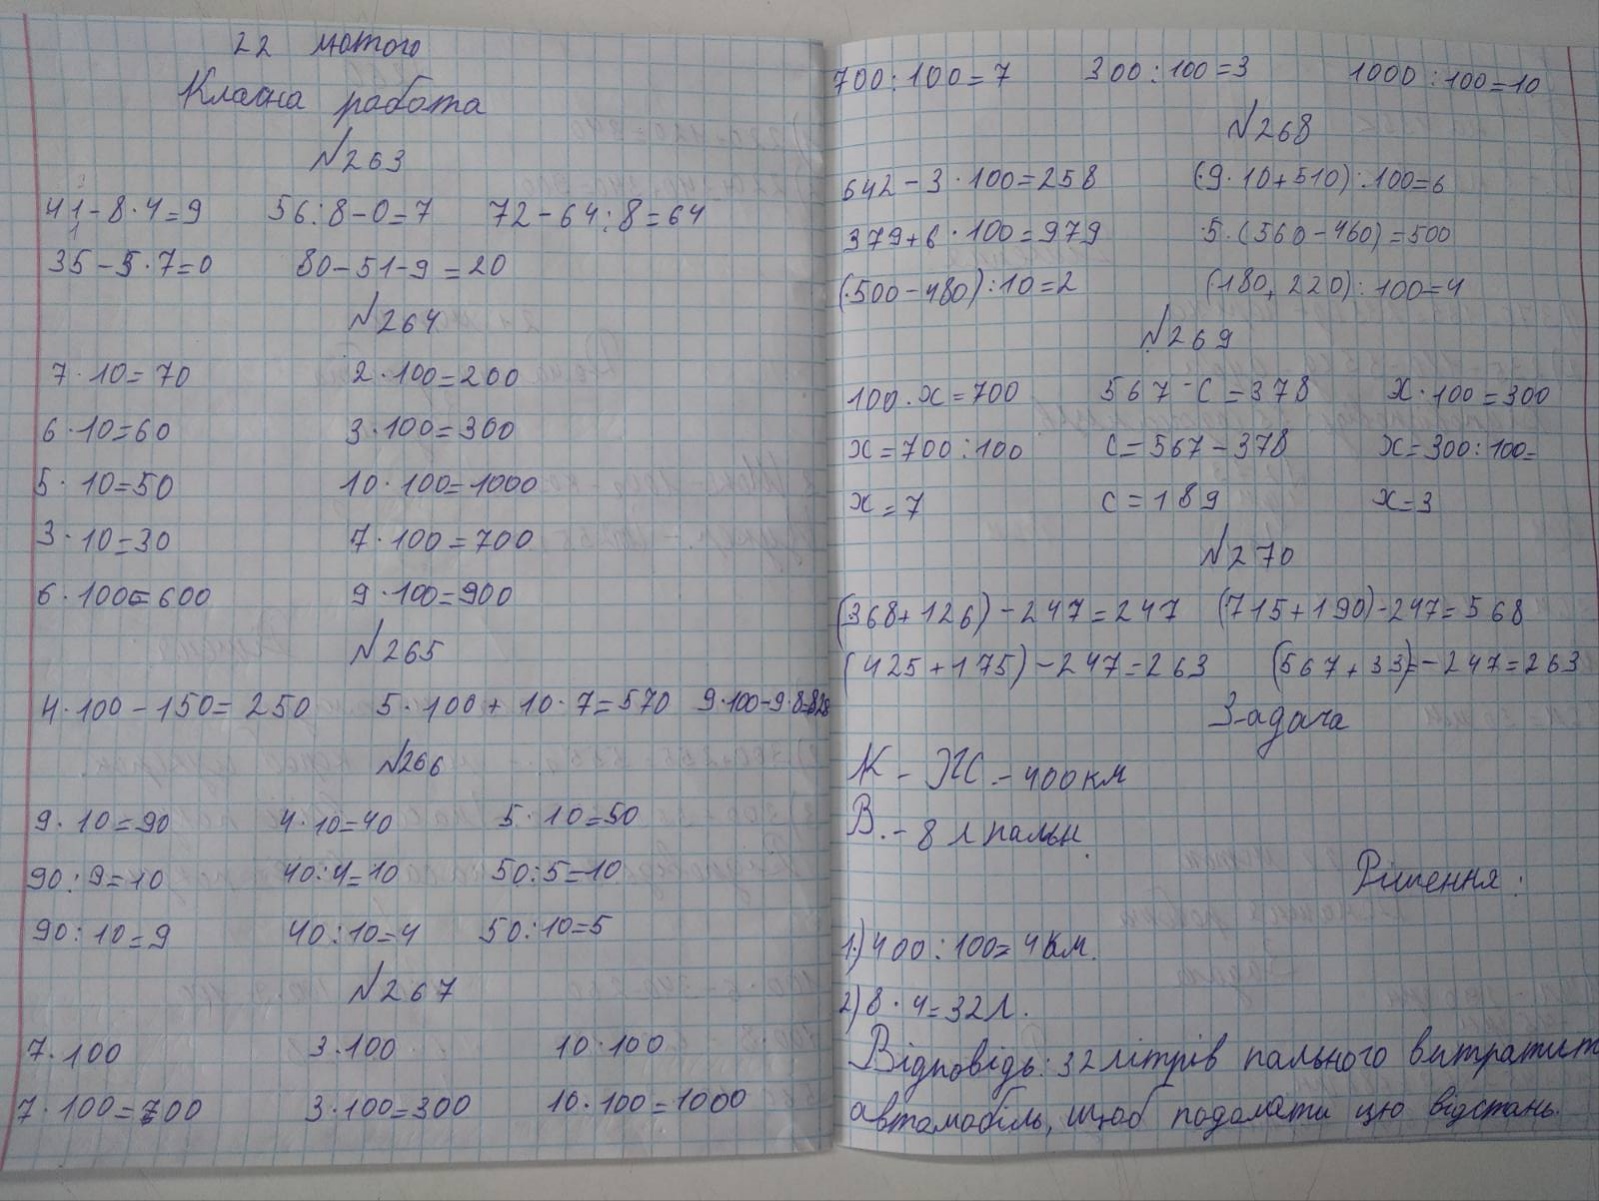 22 лютого
Класна работа
№263
41-8·4=9 56:8-0=7 72-64:8=64
35-5·7=0 80-51-9=20
№264
7·10=70 2·100=200
6·10=60 3·100=300
5·10=50 10·100=1000
3·10=30 7·100=700
6·100=600 9·100=900
№265
4·100-150=250 5·100+10·7=570 9·100-9·8=828
№266
9·10=90 4·10=40 5·10=50
90:9=10 40:4=10 50:5=10
90:10=9 40:10=4 50:10=5
№267
7·100 3·100 10·100
7·100=700 3·100=300 10·100=1000
700:100=7 300:100=3 1000:100=10
№268
642-3·100=258 (9·10+510):100=6
379+6·100=979 5·(560-460)=500
(500-480):10=2 (180+220):100=4
№269
100·x=700 567-c=378 x·100=300
x=700:100 c=567-378 x=300:100=
x=7 c=189 x=3
№270
(368+126)-247=247 (715+190)-247=568
(425+175)-247=263 (567+33)=-247=263
Задача
К-Ж-400км
В.-8 л пальн.
Рішення:
1)400:100=4км.
2)8·4=32л.
Відповідь: 32 літрів пального витратит
автомобіль, щоб подолати цю відстань.